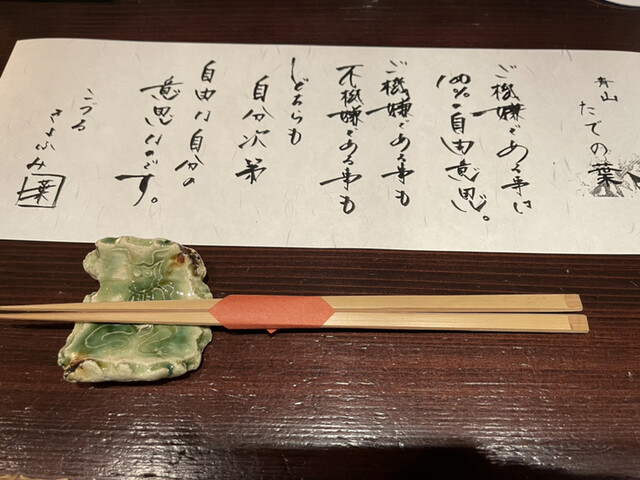 青山
たでの葉
ご機嫌である事は
100%の自由意思だ。
ご機嫌である事も
不機嫌である事も
どちらも
自分次第
自由は自分の
意思なのです。
こづる
きよふみ
葉